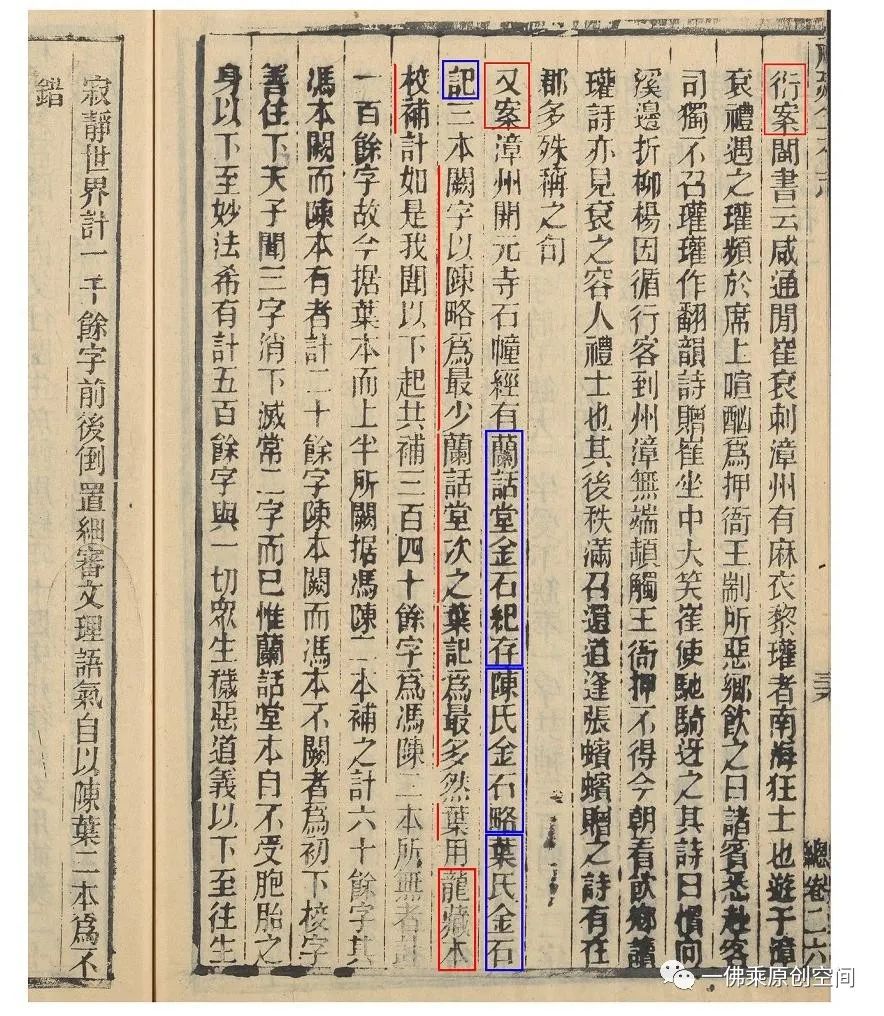 衍案閩書云咸通閒崔袞刺漳州有麻衣黎瓘者南海狂士也遊于漳
袞禮遇之瓘頻於席上喧酗爲押衙王劌所惡鄉飲之日諸賓悉赴客
司獨不召瓘瓘作翻韻詩贈崔坐中大笑崔使馳騎迓之其詩曰慣向
溪邊折柳楊因循行客到州漳無端觸王衙押不得今朝看飲鄉讀
瓘詩亦見袞之容人禮士也其後秩滿召還道逢張蠙蠙贈之詩有在
郡多殊稱之句
又案漳州開元寺石幢經有蘭話堂金石紀存陳氏金石略葉氏金石
記三本闕字以陳略爲最少蘭話堂次之葉記爲最多然葉用龍藏本
校補計如是我聞以下起共補三百四十餘字爲馮陳二本所無者計
一百餘字故今据葉本而上半所闕据馮陳二本補之計六十餘字其
馮本闕而陳本有者計二十餘字陳本闕而馮本不闕者爲初下校字
善住下天子聞三字消下滅常二字而已惟蘭話堂本自不受胞胎之
身以下至妙法希有計五百餘字與一切眾生穢惡道義以下至往生
寂靜世界計一千餘字前後倒置細審文理語氣自以陳葉二本爲不
錯
總卷二六
一佛乘原创空间